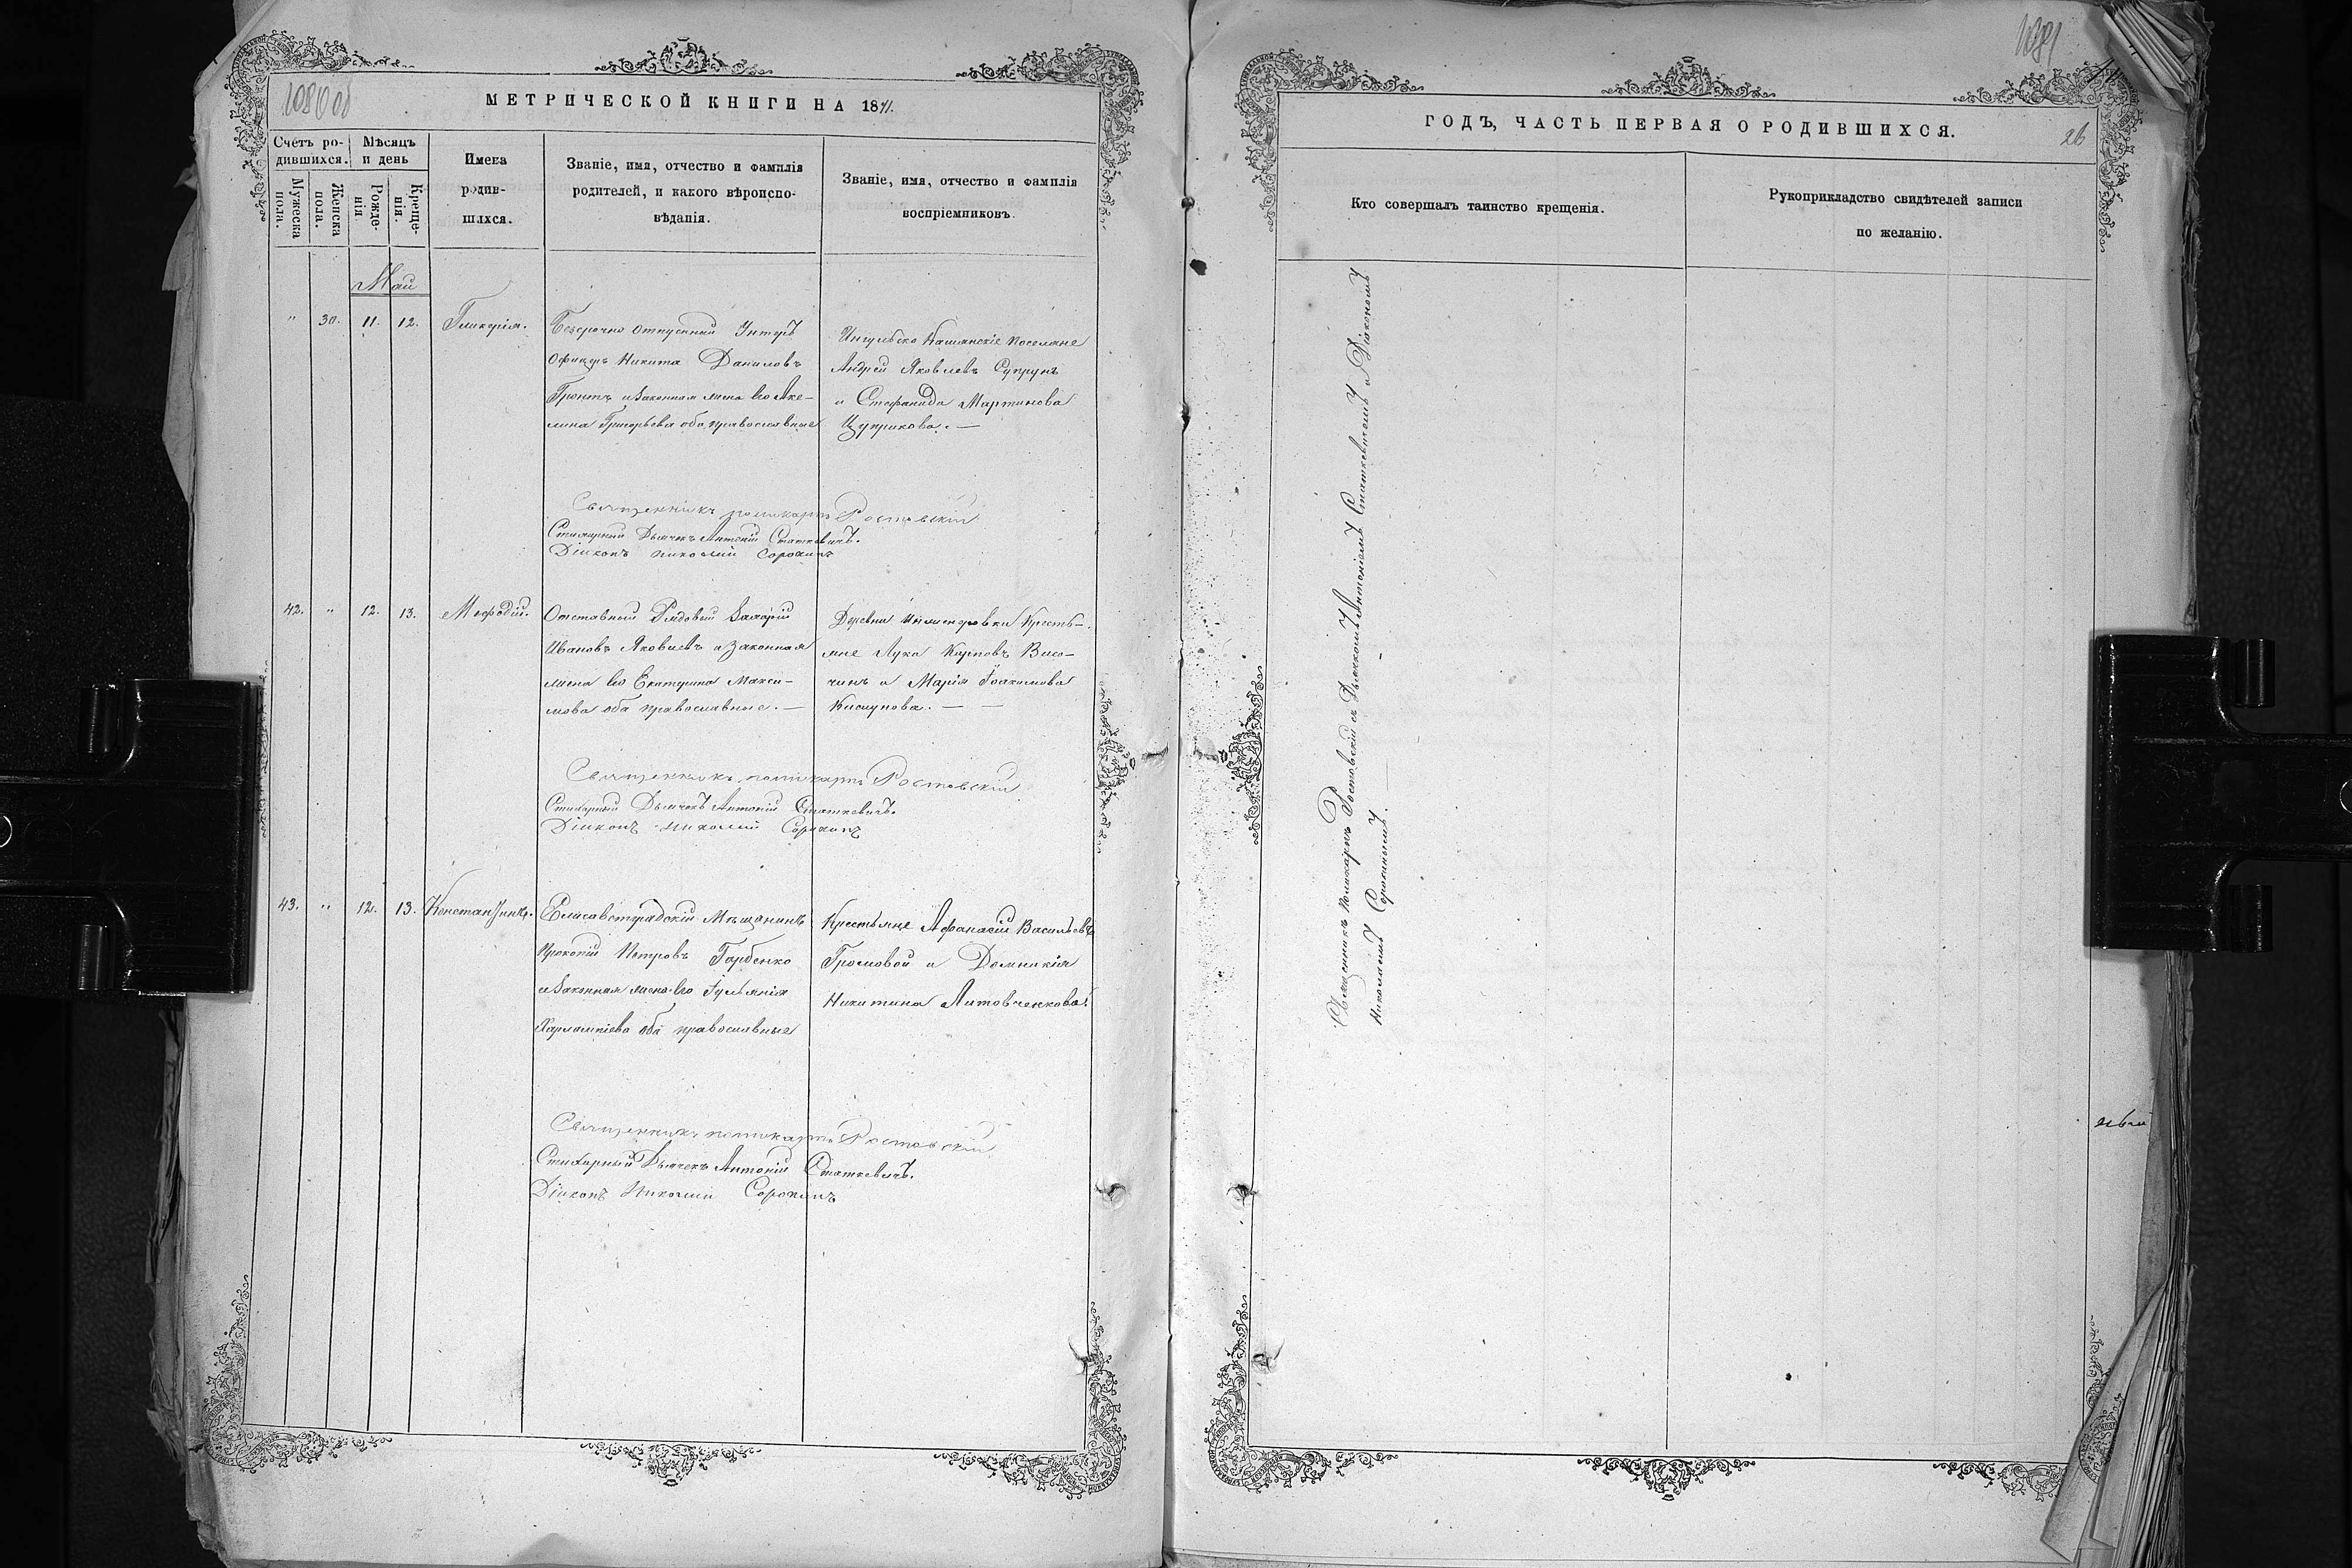 МЕТРИЧЕСКОЙ КНИГИ НА 1871.
Счетъ ро-
дившихся.
Мужеска
пола.
Женска
пола.
Мѣсяцъ
и день
Рожде-
нія.
Креще-
нія.
Имена
родив-
шихся.
Званіе, имя, отчество и фамилія
родителей, и какого вѣроиспо-
вѣданія.
Званіе, имя, отчество и фамилія
воспріемниковъ.
Май
" 30. 11. 12. Гликерія.
Безсрочно отпускной Унтеръ
Офицеръ Никита Даниловъ
и законная жена его Аке-
лина Григорьева оба православные
Ингульско Каменскіе поселяне
Андрей Яковлевъ Супрунъ
и Стефанида Мартинова
Цуприкова. —
Священникъ Поликарпъ Ростовскій
Стихарный Дьячекъ Антоній Статкевичъ.
Діаконъ Николай Сорокинъ
42. " 12. 13. Мефодій.
Отставной Рядовой Захарій
Ивановъ Яковлевъ и законная
жена его Екатерина Макси-
мова оба православные. —
Деревни Кресть-
яне Лука Карповъ Висо-
чинъ и Марія Іоакимова
Кислунова. — —
Священникъ Поликарпъ Ростовскій
Стихарный Дьячекъ Антоній Статкевичъ.
Діаконъ Николай Сорокинъ
43. " 12. 13. Константинъ.
Елисаветградскій Мѣщанинъ
Прокопій Петровъ Горбенко
и законная жена его Іуліанія
Харлампіева оба православные
Крестьяне Афанасій Васильевъ
Громовой и Домникія
Никитина Литовченкова.
Священникъ Поликарпъ Ростовскій
Стихарный Дьячекъ Антоній Статкевичъ.
Діаконъ Николай Сорокинъ
1081
26
ГОДЪ, ЧАСТЬ ПЕРВАЯ О РОДИВШИХСЯ.
Кто совершалъ таинство крещенія.
Рукоприкладство свидѣтелей записи
по желанію.
Священникъ Поликарпъ Ростовскій съ Дьячкомъ Антоніемъ Статкевичемъ и Діакономъ
Николаемъ Сорокинымъ. —